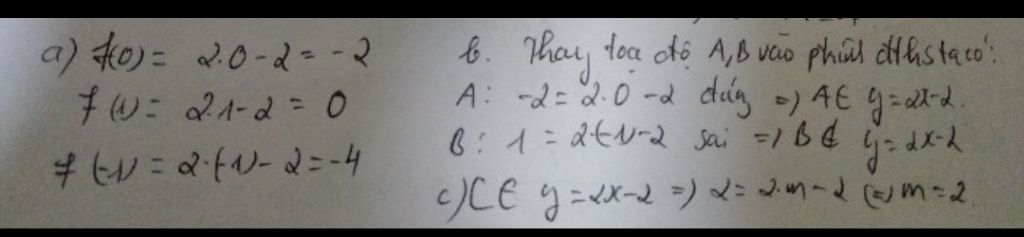 a) f(0) = 2.0-2 = -2
f(1) = 2.1-2 = 0
f(-1) = 2.(-1)-2 = -4
b. Thay toạ độ A,B vào đthsta có:
A: -2 = 2.0-2 đúng => A∈ y=2x-2.
B: 1 = 2(-1)-2 sai => B∉ y=2x-2
c) C∈ y=2x-2 => 2 = 2.m-2 (=) m=2